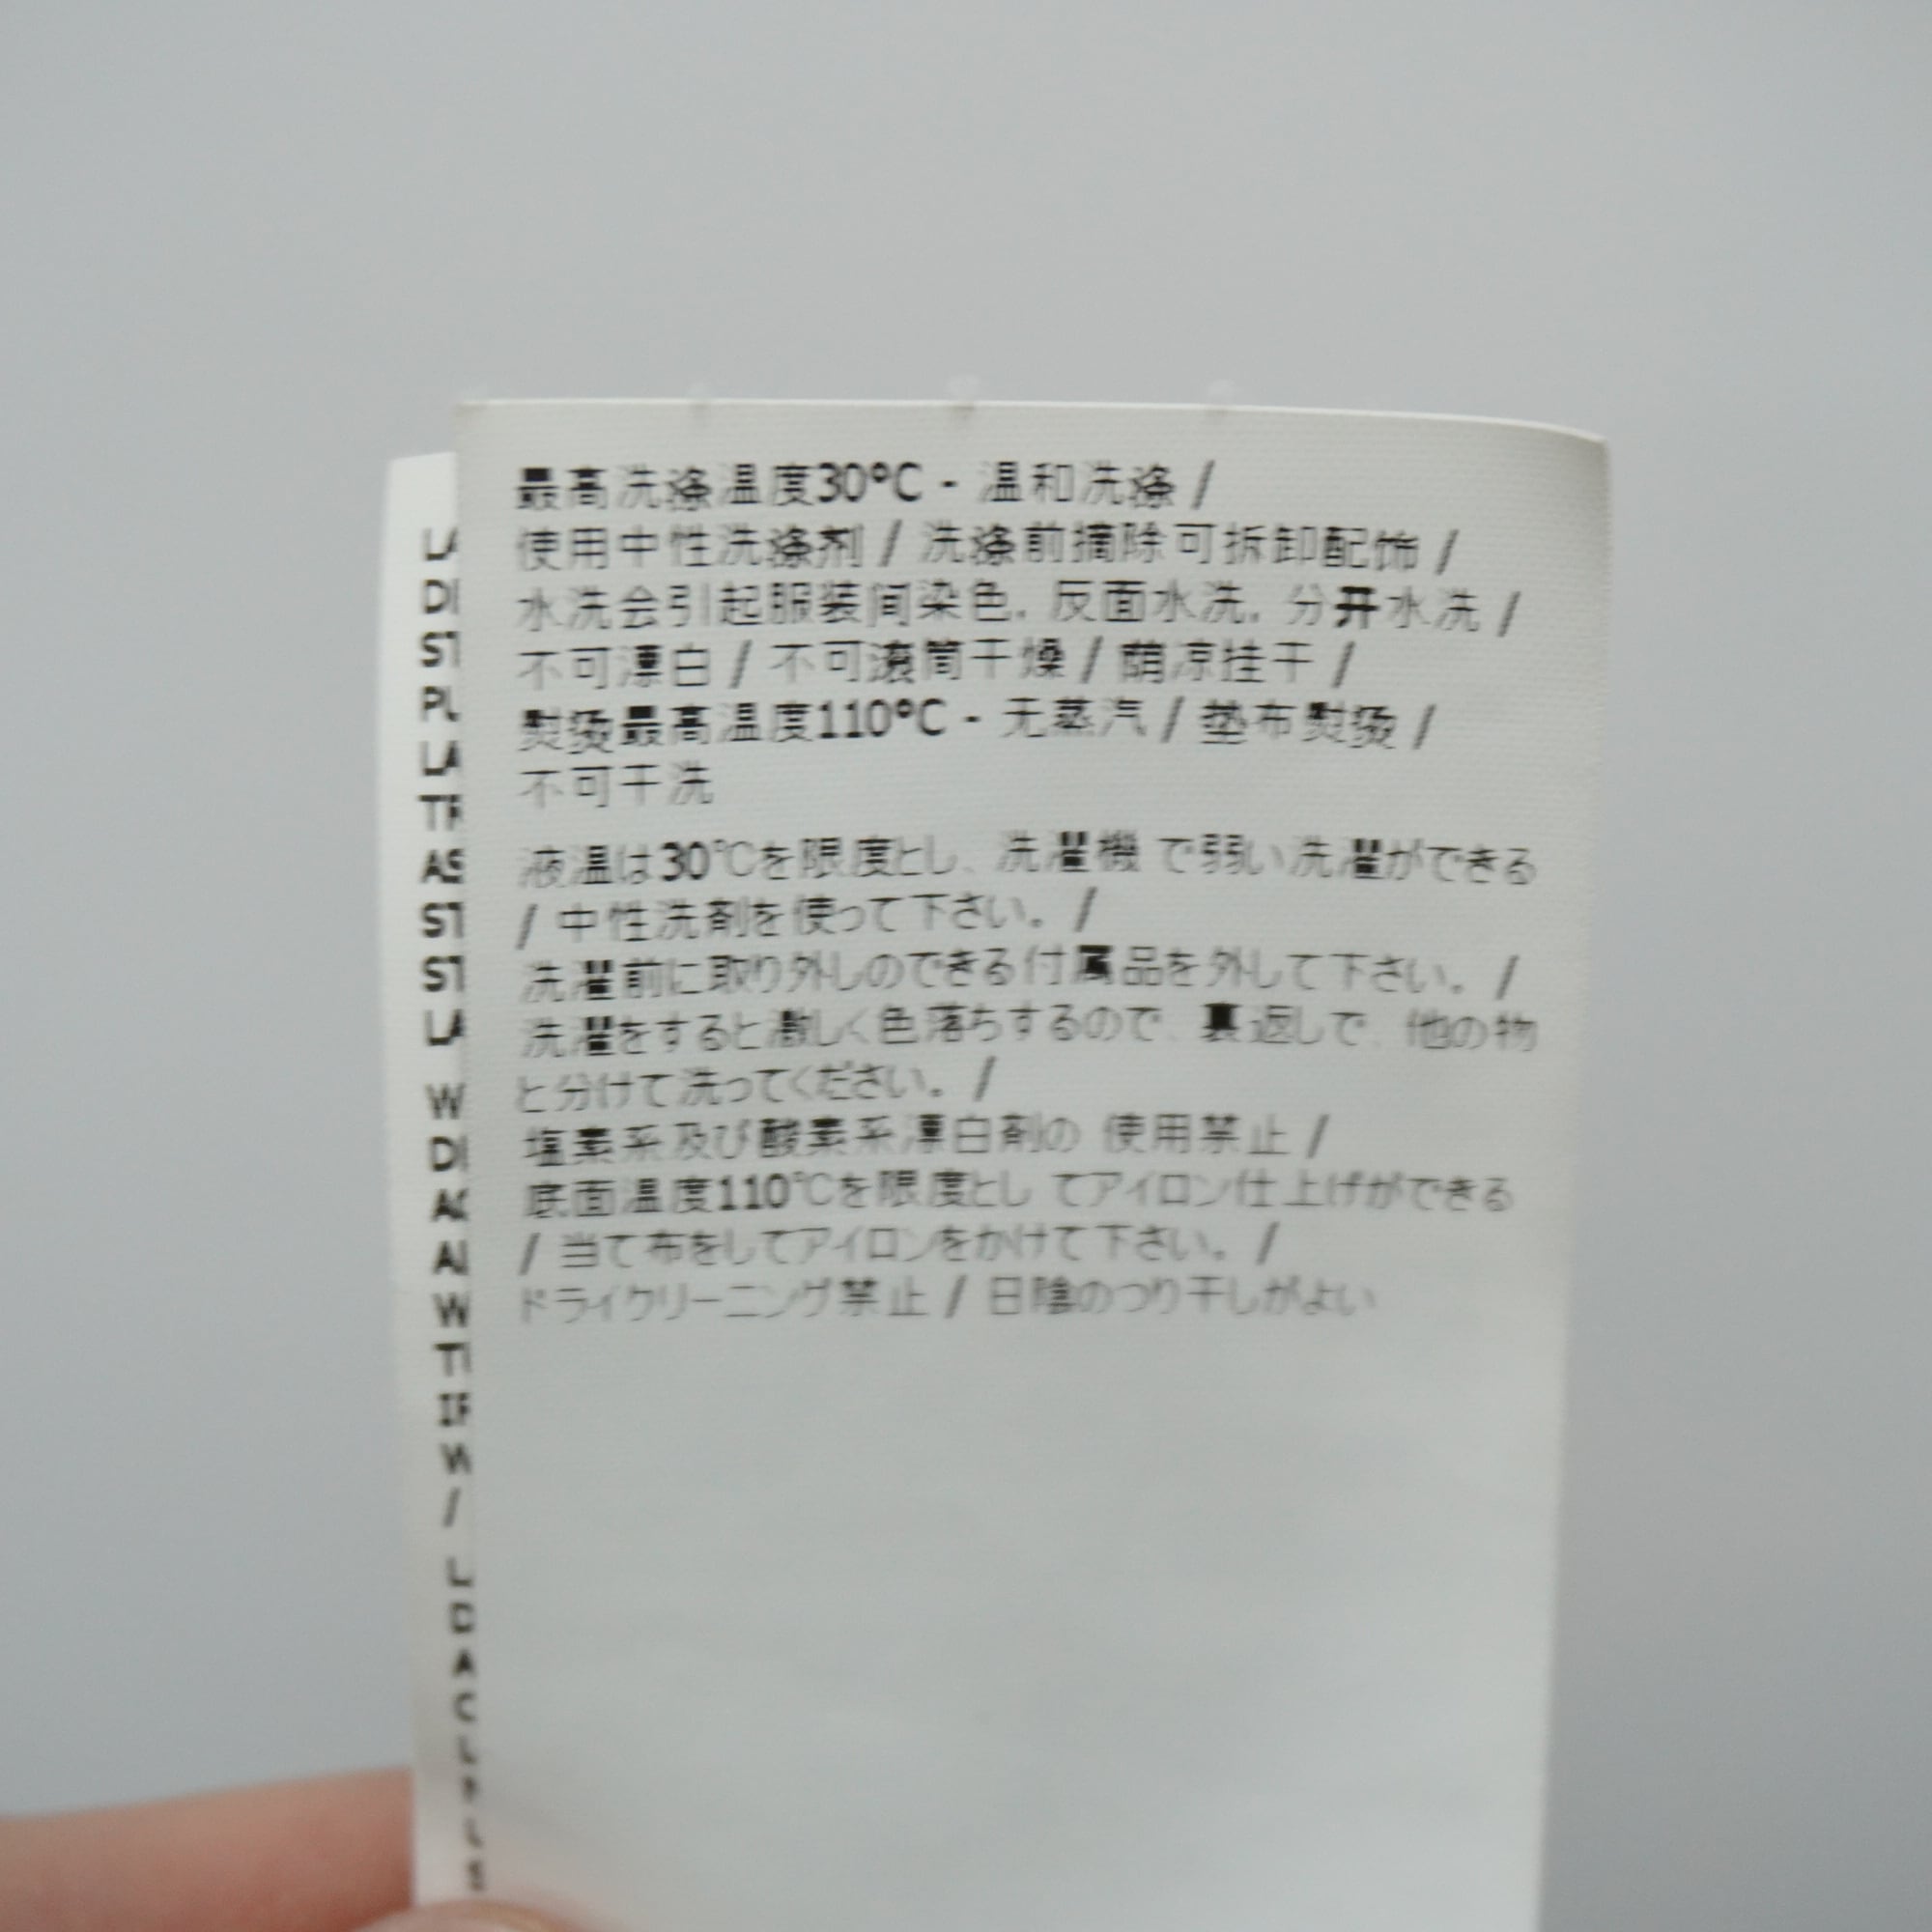 最高洗涤温度30°C - 温和洗涤 /
使用中性洗涤剂 / 洗涤前摘除可拆卸配饰 /
水洗会引起服装间染色. 反面水洗. 分开水洗 /
不可漂白 / 不可滚筒干燥 / 荫凉挂干 /
熨烫最高温度110°C - 无蒸汽 / 垫布熨烫 /
不可干洗
液温は30℃を限度とし、洗濯機 で弱い洗濯ができる
/ 中性洗剤を使って下さい。 /
洗濯前に取り外しのできる付属品を外して下さい。 /
洗濯をすると激しく色落ちするので、裏返しで、他の物
と分けて洗ってください。 /
塩素系及び酸素系漂白剤の 使用禁止 /
底面温度110℃を限度とし てアイロン仕上げができる
/ 当て布をしてアイロンをかけて下さい。 /
ドライクリーニング禁止 / 日陰のつり干しがよい
LA
DI
ST
PU
LA
TR
AS
ST
ST
LA
W
DI
AG
AL
W
TU
IR
W
/
L
D
A
C
L
L